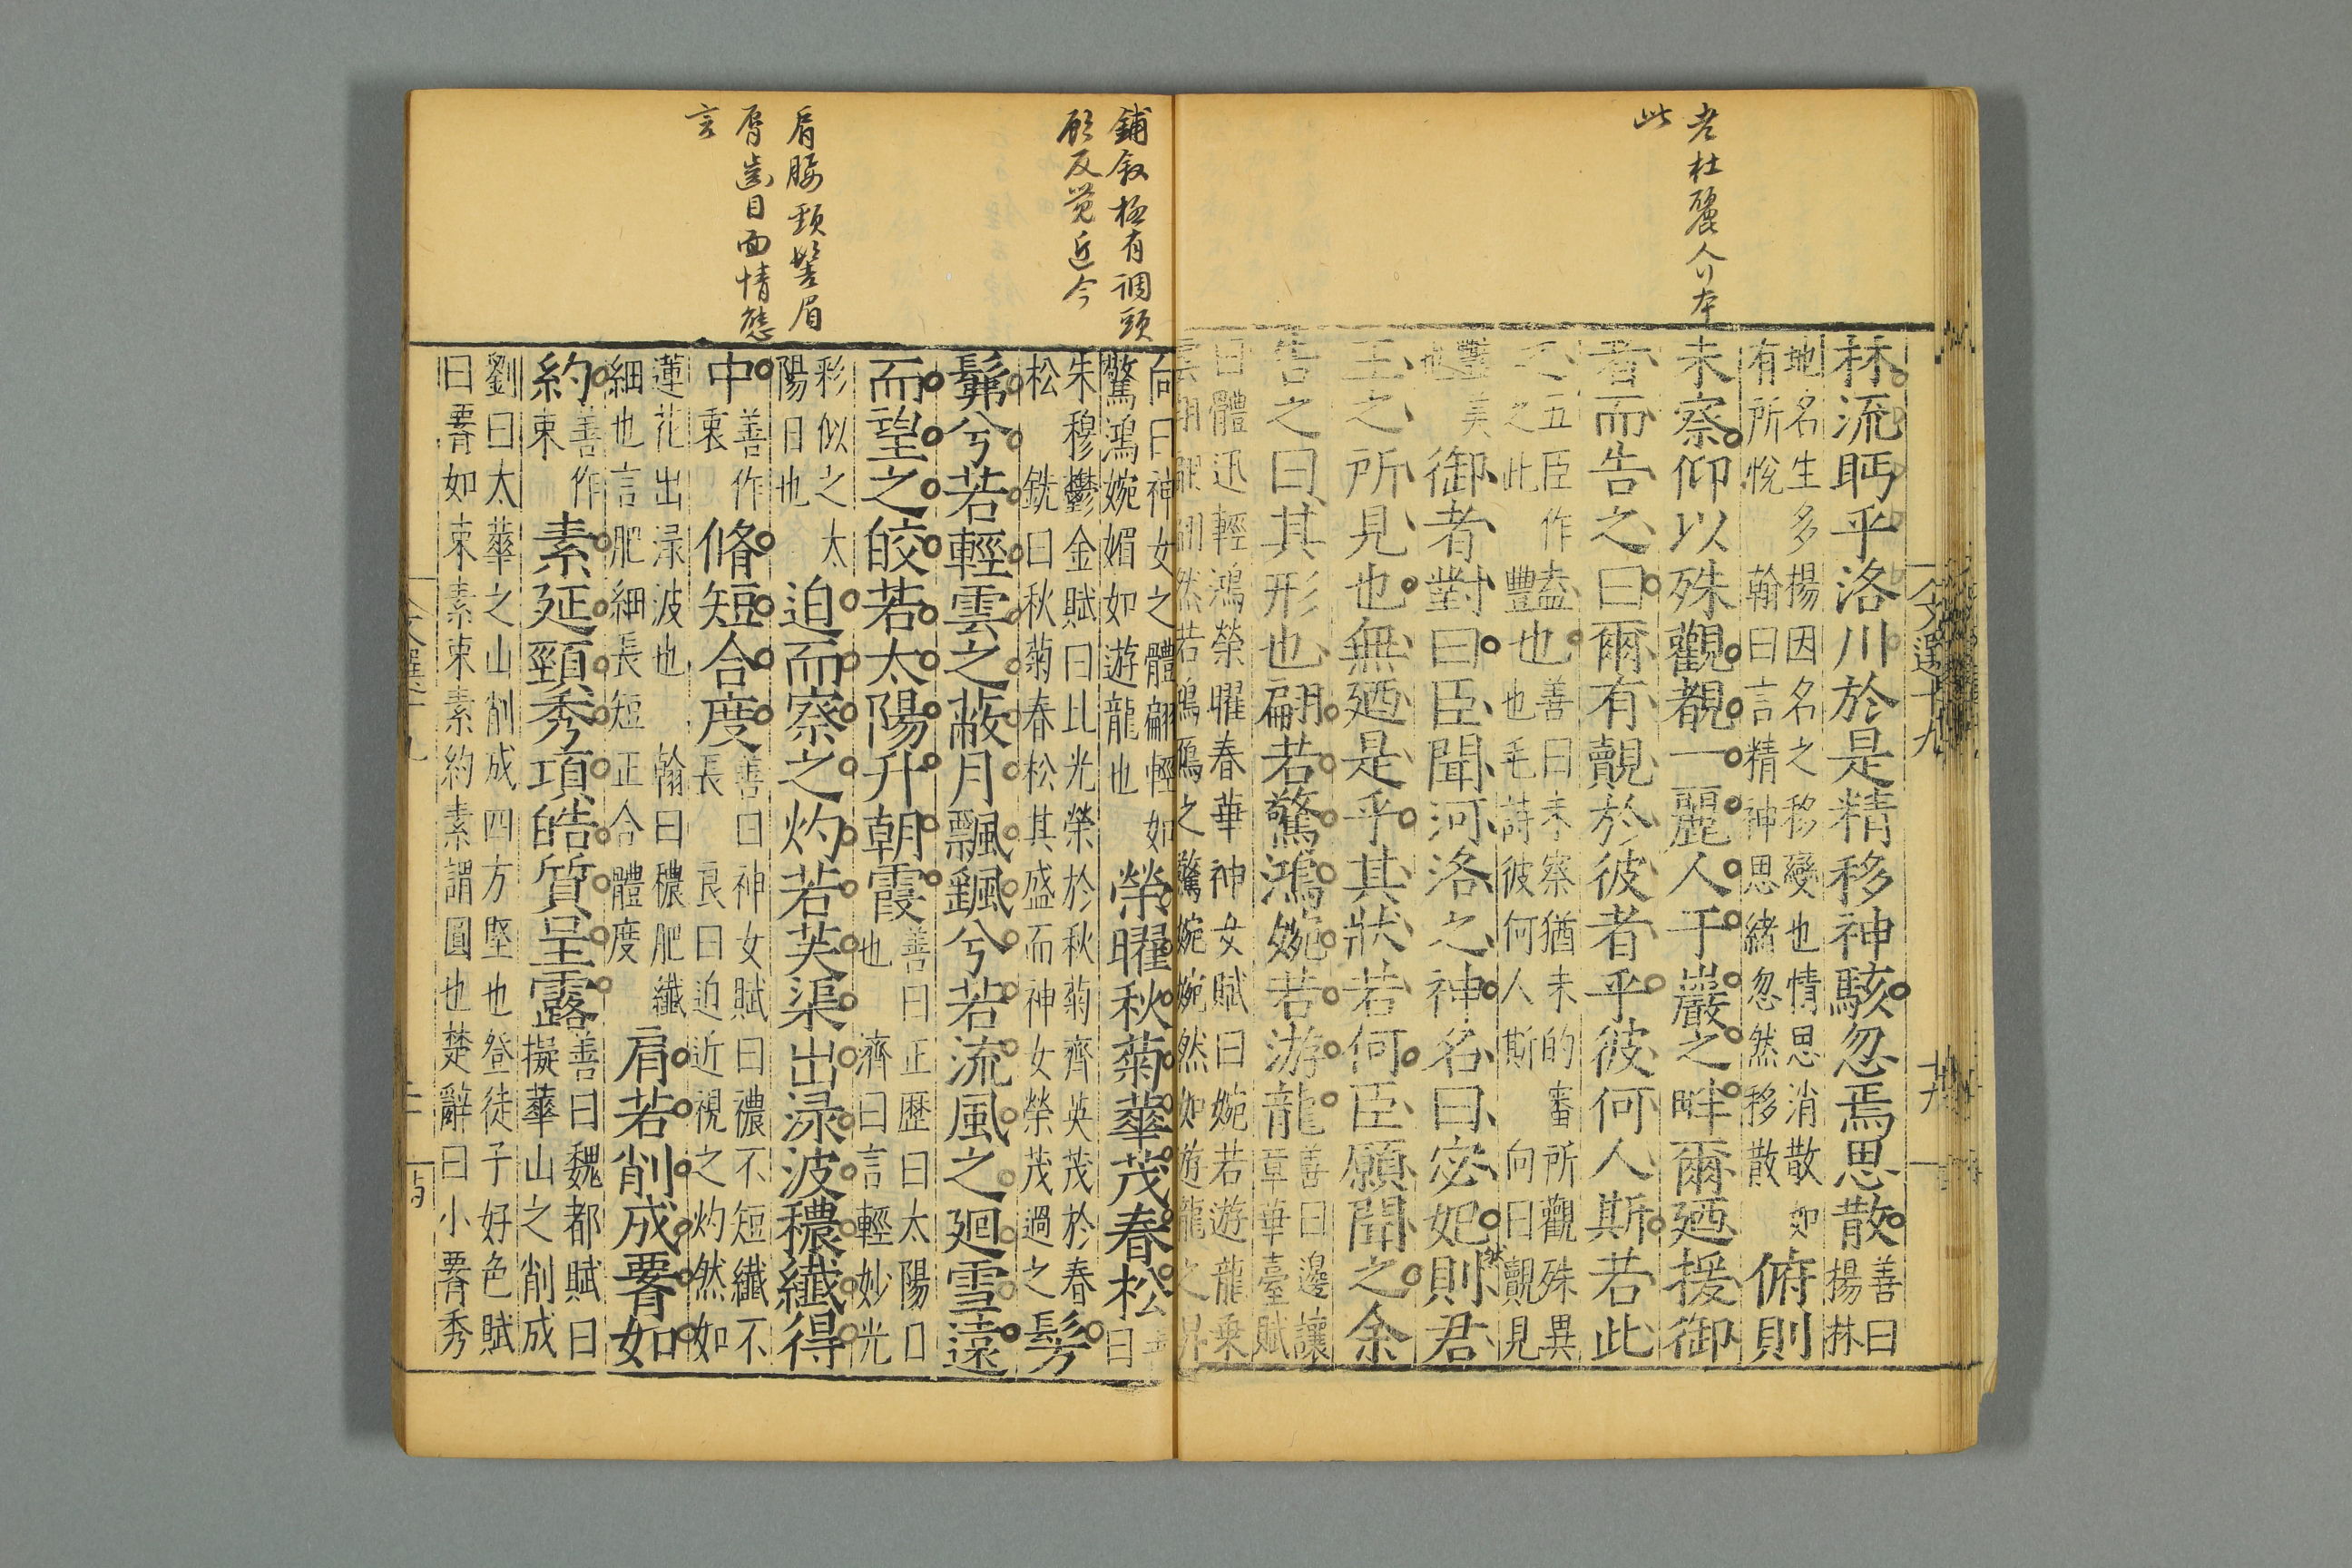 老杜麗人行本
此
林流眄乎洛川於是精移神駭忽焉思散善曰
揚林
地名生多揚因名之移變也情思消散如
有所悅翰曰言精神思緒忽然移散俯則
未察仰以殊觀覩一麗人于巖之畔爾廼援御
者而告之曰爾有覿於彼者乎彼何人斯若此
之五臣作豔也善曰未察猶未的審所觀殊異
之此豐也毛詩彼何人斯向曰覿見
豔美
也御者對曰臣聞河洛之神名曰宓妃則君
王之所見也無廼是乎其狀若何臣願聞之余
告之曰其形也翩若驚鴻婉若游龍善曰邊讓
章華臺賦
曰體迅輕鴻榮曜春華神女賦曰婉若遊龍乘
雲翔翩翩然若鴻鴈之驚婉婉然如遊龍之昇
鋪叙極有調頭
顧反覺近今
向曰神女之體翩輕如
驚鴻婉媚如遊龍也榮曜秋菊華茂春松
曰
朱穆鬱金賦曰比光榮於秋菊齊英茂於春
松 銑曰秋菊春松其盛而神女榮茂過之髣
髴兮若輕雲之蔽月飄颻兮若流風之廻雪遠
而望之皎若太陽升朝霞善曰正歷曰太陽日
也 濟曰言輕妙光
彩似之太
陽日也迫而察之灼若芙蕖出渌波穠纖得
中善作
衷脩短合度善曰神女賦曰禯不短纖不
長 良曰迫近視之灼然如
肩腰頸髻眉
脣齒目面情態
言
蓮花出渌波也 翰曰穠肥纖
細也言肥細長短正合體度肩若削成署如
約善作
束素延頸秀項皓質呈露善曰魏都賦曰
擬華山之削成
劉曰太華之山削成四方堅也登徒子好色賦
曰署如束素束素約素謂圓也楚辭曰小署秀
文選十九